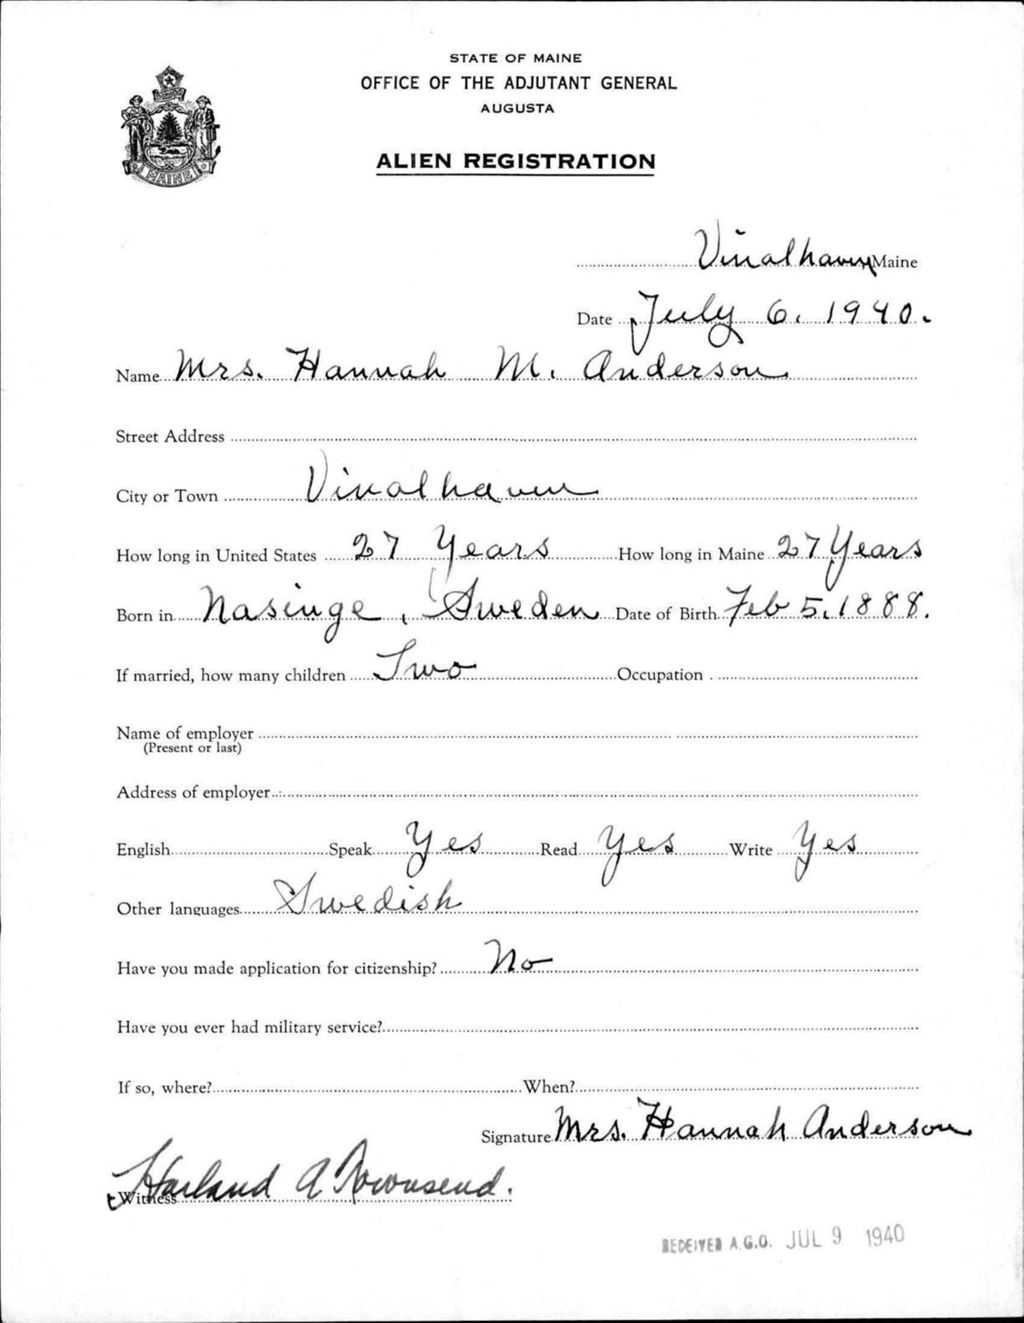 STATE OF MAINE
OFFICE OF THE ADJUTANT GENERAL
AUGUSTA
ALIEN REGISTRATION
MAINE
Vinalhaven Maine
Date July 6, 1940.
Name Mrs. Hannah M. Anderson
Street Address
City or Town Vinalhaven
How long in United States 27 Years How long in Maine 27 Years
Born in Nasinge, Sweden Date of Birth Feb 5, 1888.
If married, how many children Two Occupation
Name of employer
(Present or last)
Address of employer
English Speak Yes Read Yes Write Yes
Other languages Swedish
Have you made application for citizenship? No
Have you ever had military service?
If so, where? When?
Signature Mrs. Hannah Anderson
Witness Harland A Townsend.
RECEIVED A.G.O. JUL 9 1940